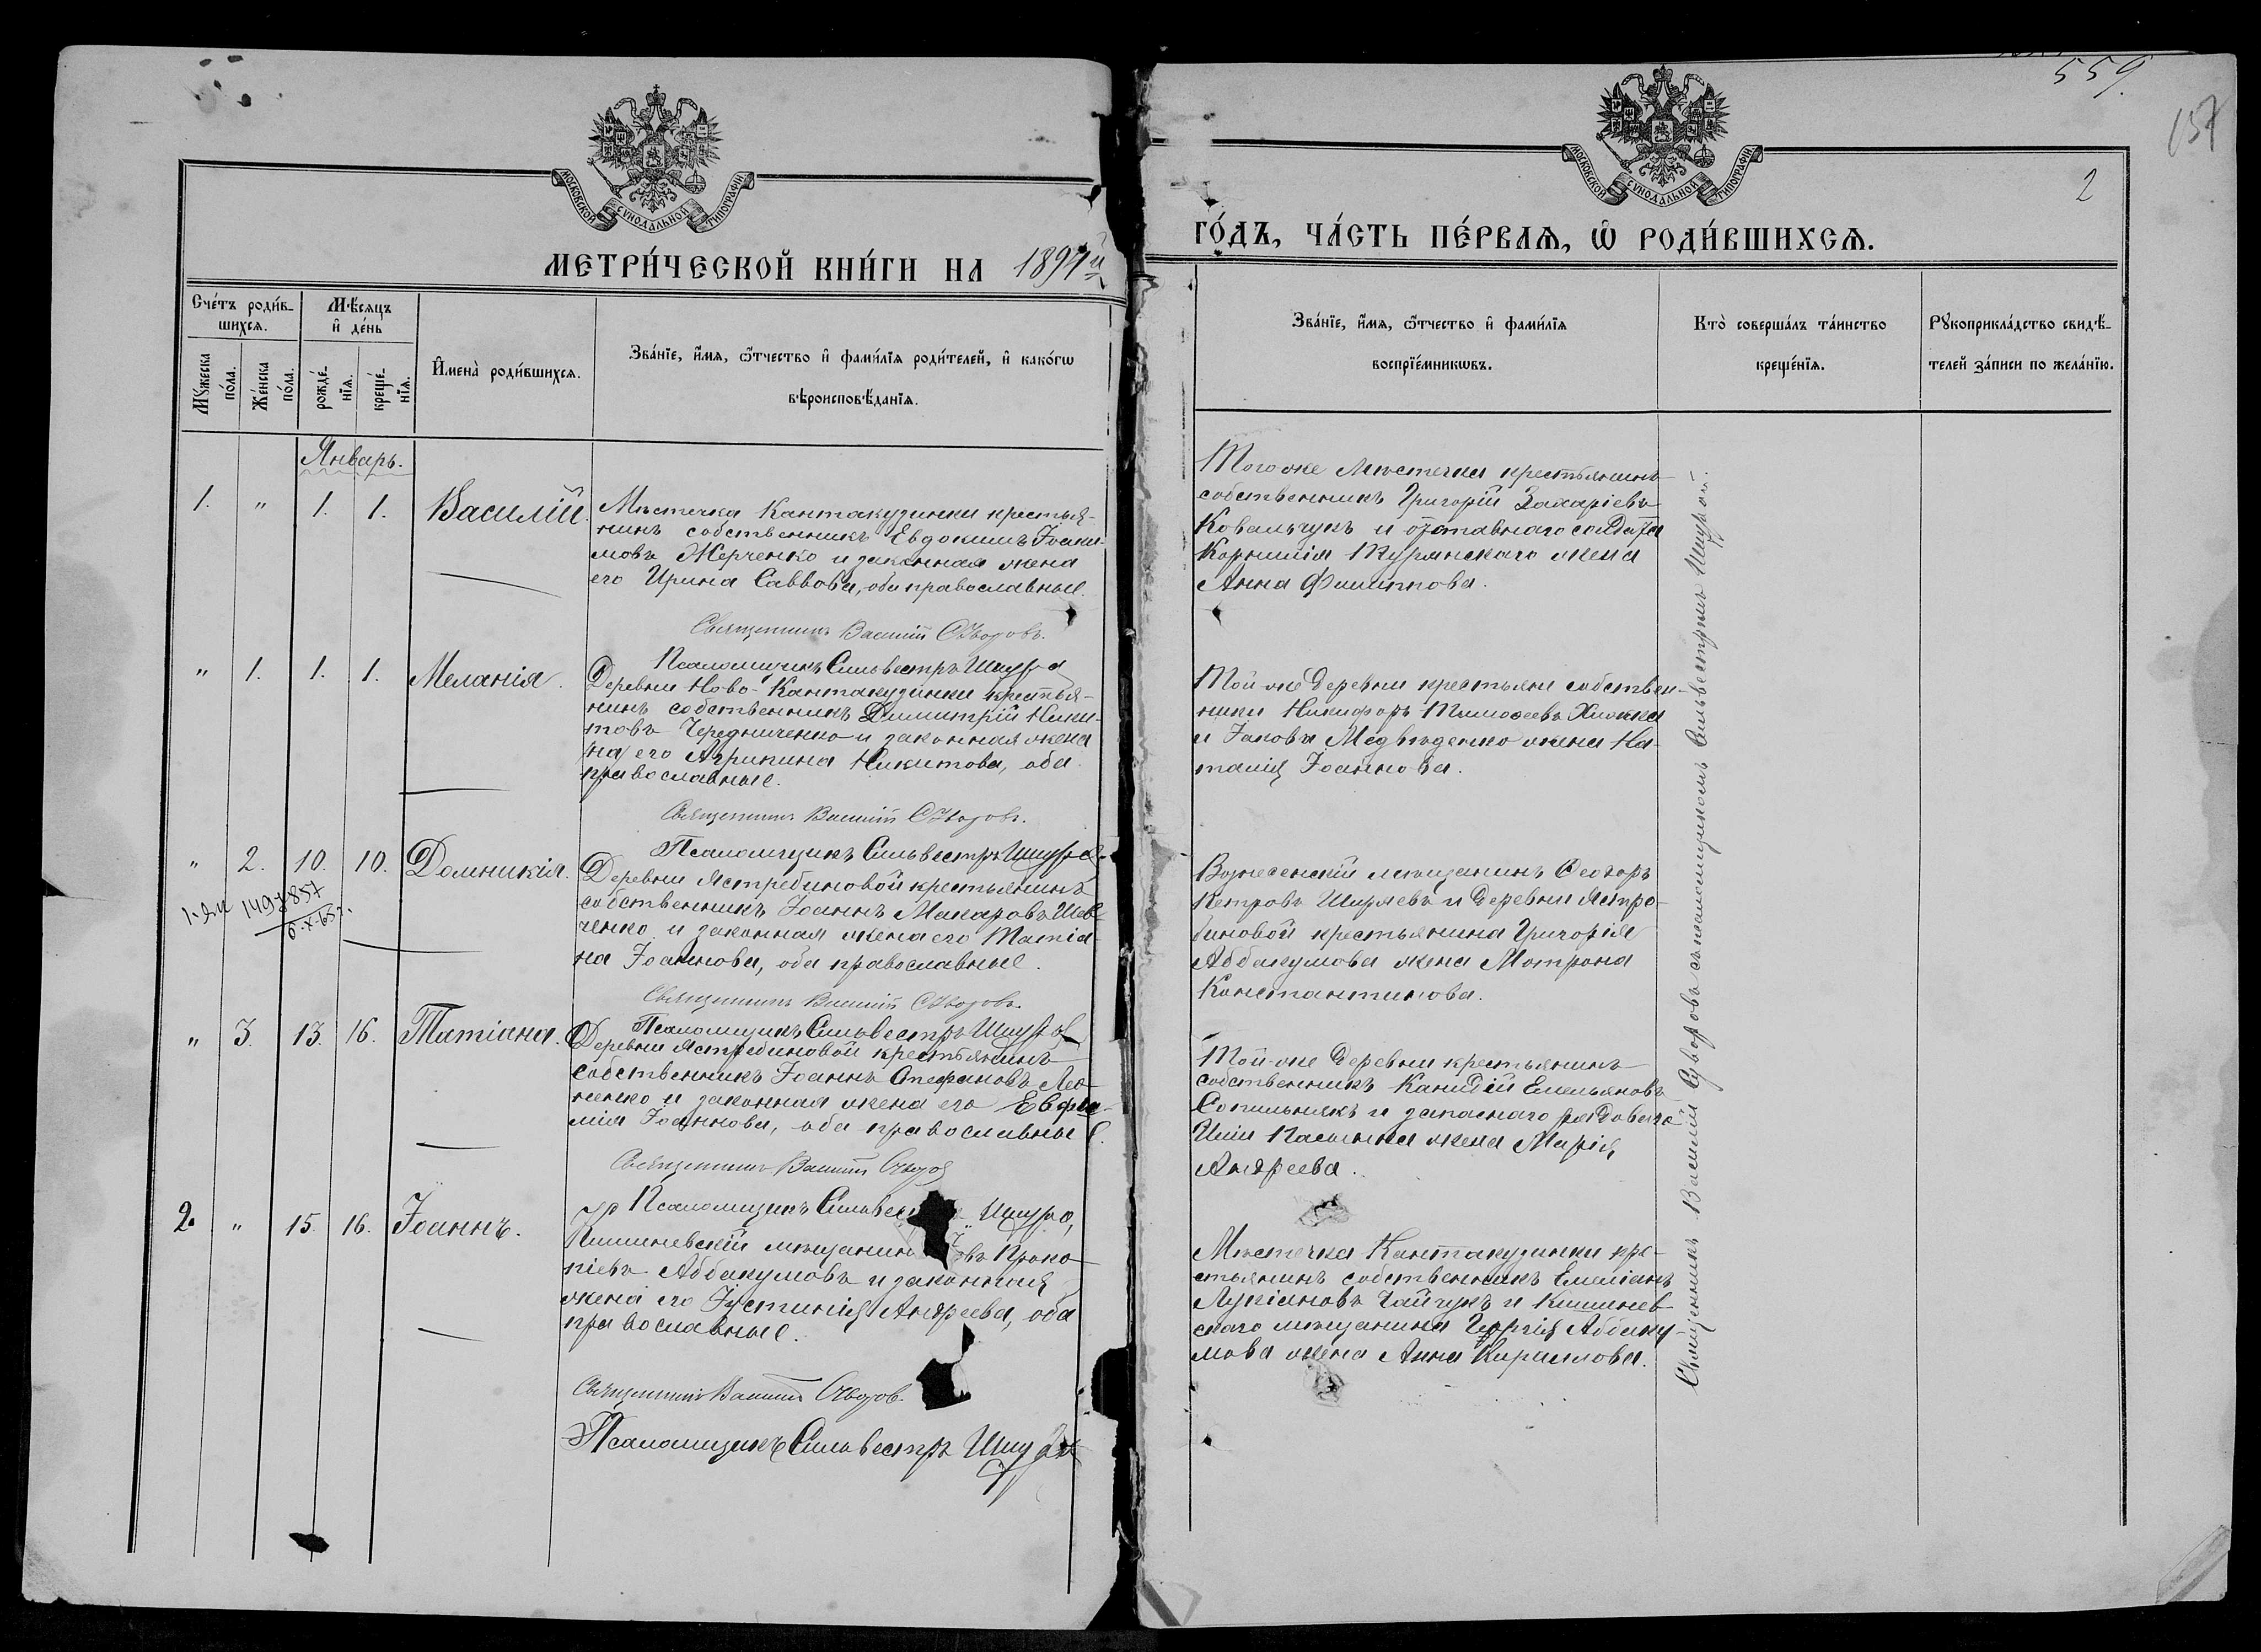 559.
157
2
МОСКОВСКОЙ СУНОДАЛЬНОЙ ТИПОГРАФІИ
МОСКОВСКОЙ СУНОДАЛЬНОЙ ТИПОГРАФІИ
МЕТРИ́ЧЕСКОЙ КНИ́ГИ НА 1897й
ГО́ДЪ, ЧА́СТЬ ПЕ́РВАѦ, Ѽ РОДИ́ВШИХСѦ.
Сче́тъ роди́в-
шихсѧ.
Мѣ́сѧцъ
и҆ де́нь
Мꙋ́жеска
по́ла.
Же́нска
по́ла.
рожде́-
нїѧ.
креще́-
нїѧ.
И҆мена̀ роди́вшихсѧ.
Зва́нїе, и҆́мѧ, ѻ҆́тчество и҆ фами́лїѧ роди́телей, и҆ како́гѡ
вѣроисповѣ́данїѧ.
Зва́нїе, и҆́мѧ, ѻ҆́тчество и҆ фами́лїѧ
воспрїе́мникѡвъ.
Кто̀ соверша́лъ та́инство
креще́нїѧ.
Рꙋкоприкла́дство свидѣ́-
телей за́писи по жела́нїю.
Январь.
1. " 1. 1. Василій.
Мѣстечка Кантакузинки крестья-
нинъ собственникъ Евдокимъ Іоаки-
мовъ Жерченко и законная жена
его Ирина Саввова, оба православные.
Священникъ Василій Суворовъ.
Псаломщикъ Сильвестръ Шиура
Того же мѣстечка крестьянинъ
собственникъ Григорій Захаріевъ
Ковальчукъ и отставнаго солдата
Корнилія Турянскаго жена
Анна Филиппова.
" 1. 1. 1. Меланія.
Деревни Ново-Кантакузинки крестья-
нинъ собственникъ Димитрій Ники-
товъ Чередниченко и законная жена
на его Агрипина Никитова, оба
православные.
Священникъ Василій Суворовъ.
Псаломщикъ Сильвестръ Шиура
Той-же деревни крестьяне собствен-
ники Никифоръ Тимоѳеевъ
и Іакова Медвѣденко жена На-
талія Іоаннова.
" 2. 10. 10. Домникія.
6.X.65г.
Деревни Ястребиновой крестьянинъ
собственникъ Іоаннъ Макаровъ Шев-
ченко и законная жена его Татіа-
на Іоаннова, оба православные.
Священникъ Василій Суворовъ.
Псаломщикъ Сильвестръ Шиура
Вознесенскій мѣщанинъ Ѳеодоръ
Петровъ Ширяевъ и деревни Ястре-
биновой крестьянина Григорія
Аббакумова жена Матрона
Константинова.
" 3. 13. 16. Татіана.
Деревни Ястребиновой крестьянинъ
собственникъ Іоаннъ Стефановъ Лео-
ненко и законная жена его Евфи-
мія Іоаннова, оба православные.
Священникъ Василій Суворов
Псаломщикъ Сильвестръ Шиура
Той-же деревни крестьянинъ
собственникъ Емельяновъ
Сопильнякъ и запаснаго рядоваго
жена Марія
Андреева.
2. " 15. 16. Іоаннъ.
Кишиневскій мѣщанин овъ Проко-
піевъ Аббакумовъ и законная
жена его Іустинія Андреева, оба
православные.
Священникъ Василій Суворов.
Псаломщикъ Сильвестръ Шиура
Мѣстечка Кантакузинки кре-
стьянинъ собственникъ Емеліанъ
Лукіановъ Чайчукъ и Кишинев-
скаго мѣщанина Георгія Аббаку-
мова жена Анна Кириллова.
Священникъ Василій Суворовъ съ псаломщикомъ Сильвестромъ Шиурой.